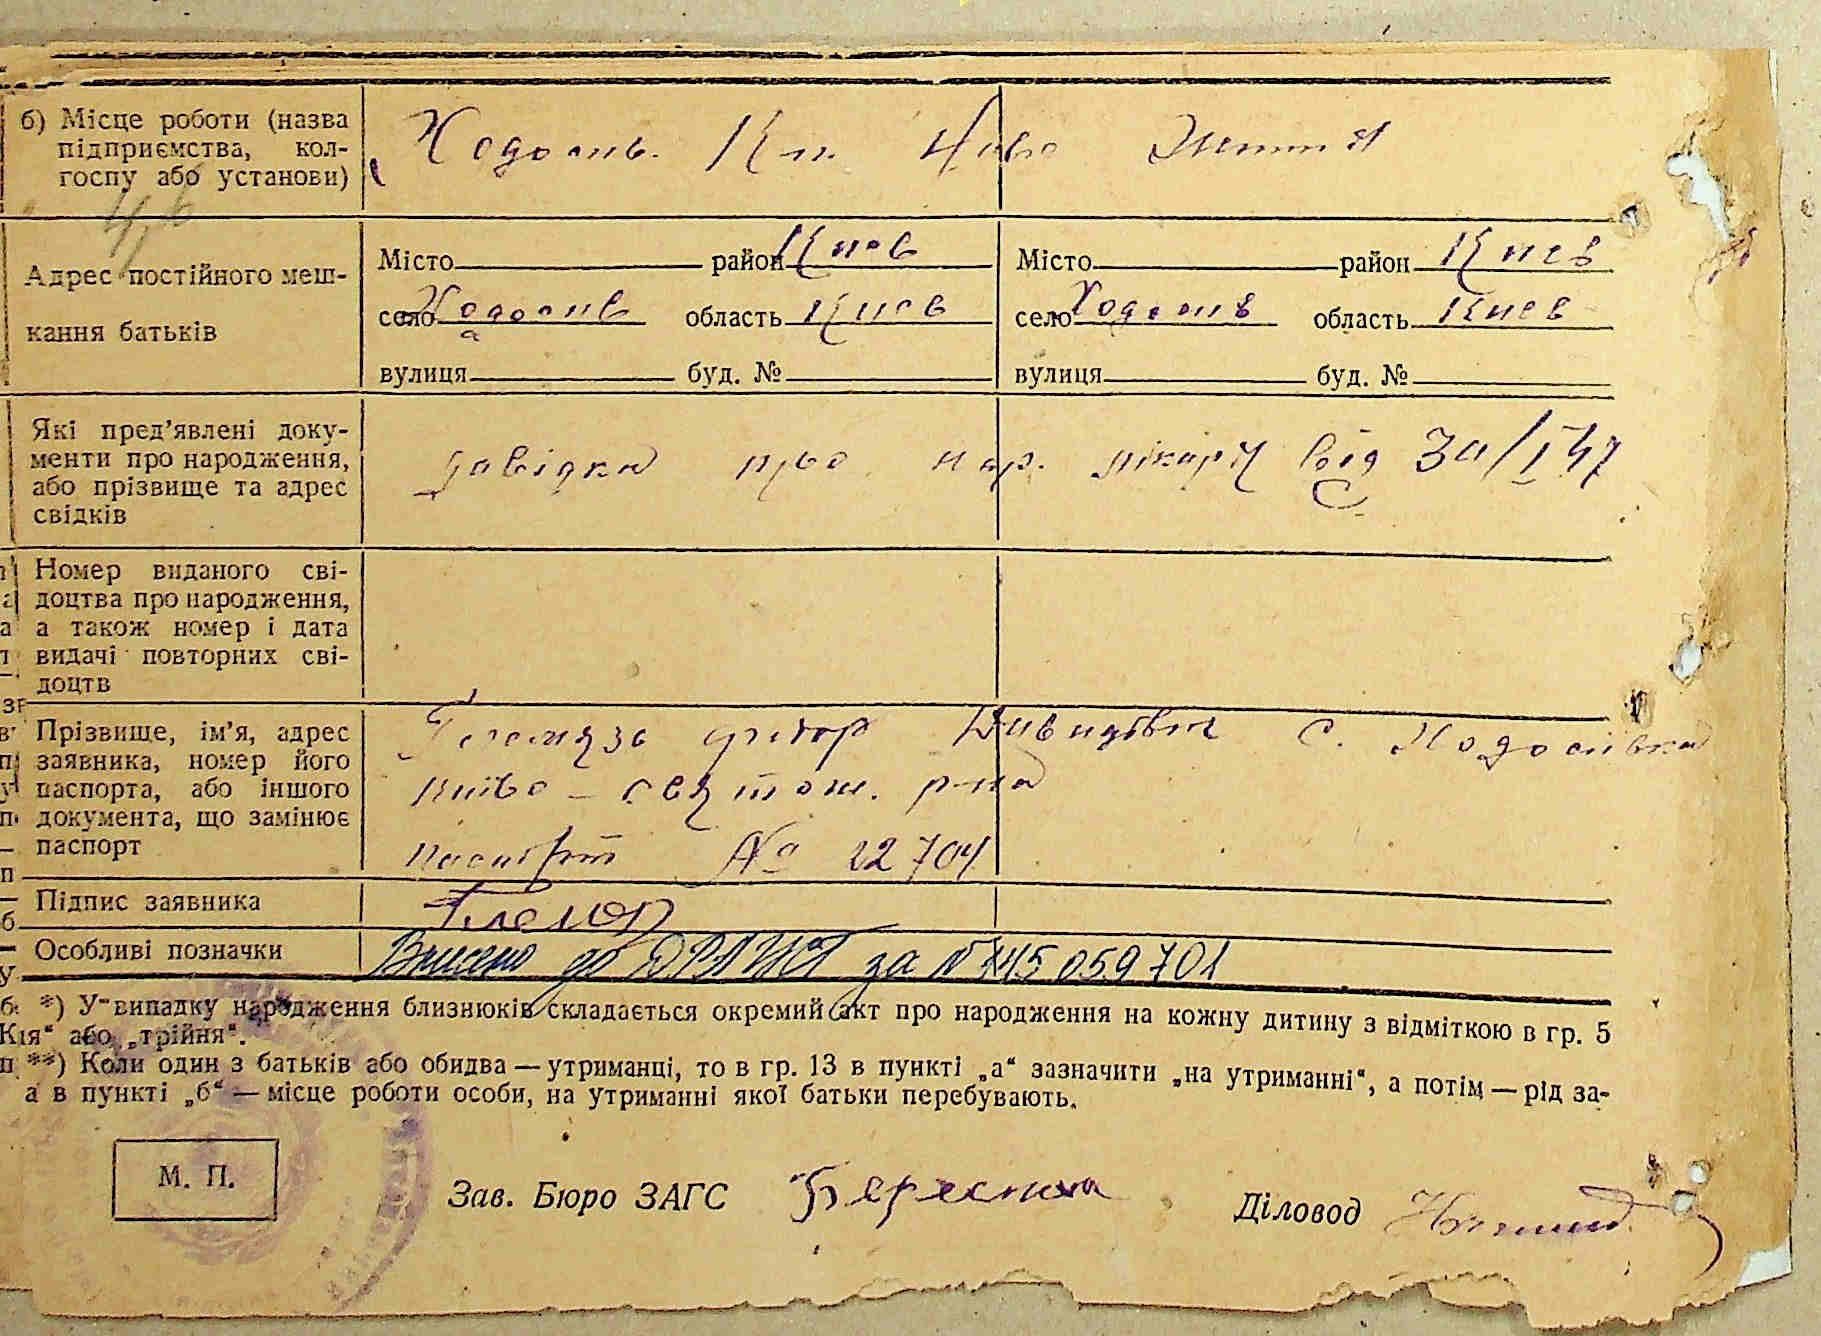 б) Місце роботи (назва
підприємства, кол-
госпу або установи)
Ходосів. К-п. Нове Життя
Адрес постійного меш-
кання батьків
Місто район Києв Місто район Києв
село Ходосів область Києв село Ходосів область Києв
вулиця буд. № вулиця буд. №
Які пред'явлені доку-
менти про народження,
або прізвище та адрес
свідків
довідка про нар. лікаря від 30/I 47
Номер виданого сві-
доцтва про народження,
а також номер і дата
видачі повторних сві-
доцтв
Прізвище, ім'я, адрес
заявника, номер його
паспорта, або іншого
документа, що замінює
паспорт
Федор Давидович с. Ходосівка
Києво-Святош. р-на
паспорт № 22704
Підпис заявника
Особливі позначки
Внесено до ДРАЦСГ за № 00145059701
*) У випадку народження близнюків складається окремий акт про народження на кожну дитину з відміткою в гр. 5
або „трійня“.
**) Коли один з батьків або обидва — утриманці, то в гр. 13 в пункті „а“ зазначити „на утриманні“, а потім — рід за-
а в пункті „б“ — місце роботи особи, на утриманні якої батьки перебувають.
М. П.
Зав. Бюро ЗАГС
Діловод